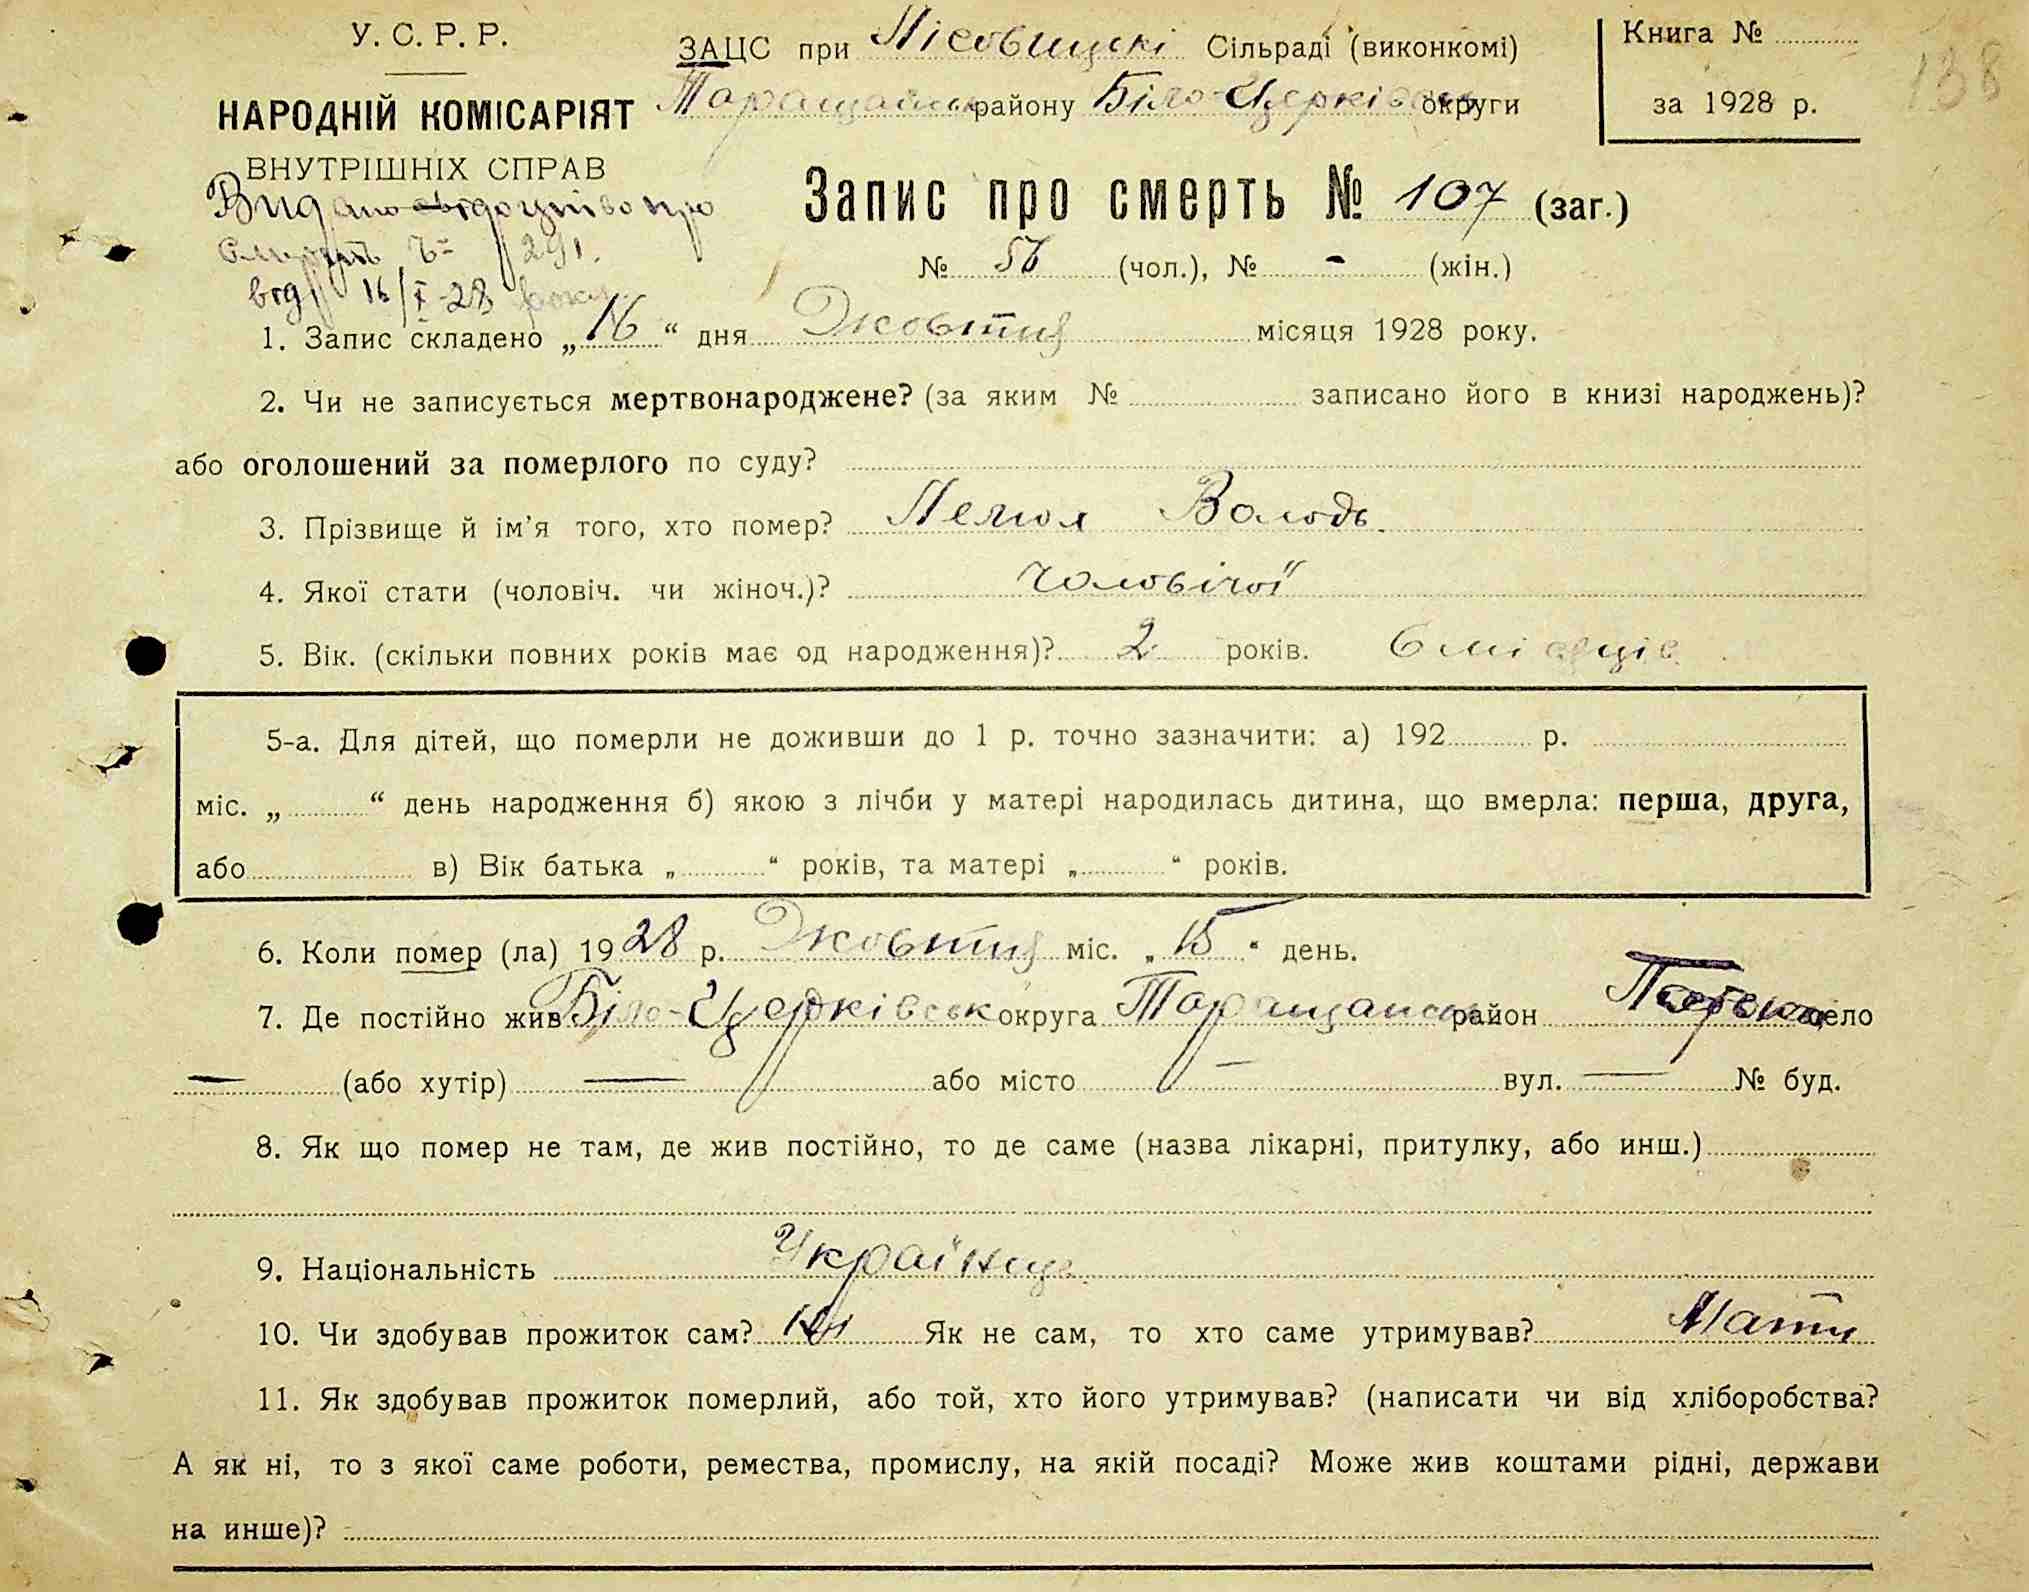 У. С. Р. Р.
НАРОДНІЙ КОМІСАРІЯТ
ВНУТРІШНІХ СПРАВ
Видано свідоцтво про
смерть Ч= 291.
від 16/X-28 року
ЗАЦС при Лісовицькі Сільраді (виконкомі)
Таращанськ району Біло-Церківськ округи
Книга №
за 1928 р.
138
Запис про смерть № 107 (заг.)
№ 56 (чол.), № - (жін.)
1. Запис складено „16“ дня Жовтня місяця 1928 року.
2. Чи не записується мертвонароджене? (за яким № записано його в книзі народжень)?
або оголошений за померлого по суду?
3. Прізвище й ім'я того, хто помер? Володь.
4. Якої стати (чоловіч. чи жіноч.)? чоловічої
5. Вік. (скільки повних років має од народження)? 2 років. 6 місяців.
5-а. Для дітей, що померли не доживши до 1 р. точно зазначити: а) 192 р.
міс. „ “ день народження б) якою з лічби у матері народилась дитина, що вмерла: перша, друга,
або в) Вік батька „ “ років, та матері „ “ років.
6. Коли помер (ла) 1928 р. Жовтня міс. „15“ день.
7. Де постійно жив Біло-Церківськ округа Таращанськ район село
— (або хутір) — або місто — вул. — № буд.
8. Як що помер не там, де жив постійно, то де саме (назва лікарні, притулку, або инш.)
9. Національність Українець
10. Чи здобував прожиток сам? Ні Як не сам, то хто саме утримував? Мати
11. Як здобував прожиток померлий, або той, хто його утримував? (написати чи від хліборобства?
А як ні, то з якої саме роботи, ремества, промислу, на якій посаді? Може жив коштами рідні, держави
на инше)?